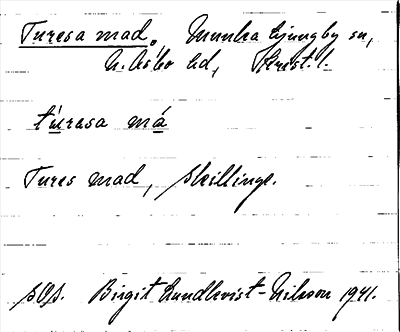 Turesa mad, Munka Ljungby sn,
N. Åsbo hd, Krist. l.
tùrasa má
Tures mad, Skillinge.
SOS. Birgit Lundkvist-Nilsson 1941.